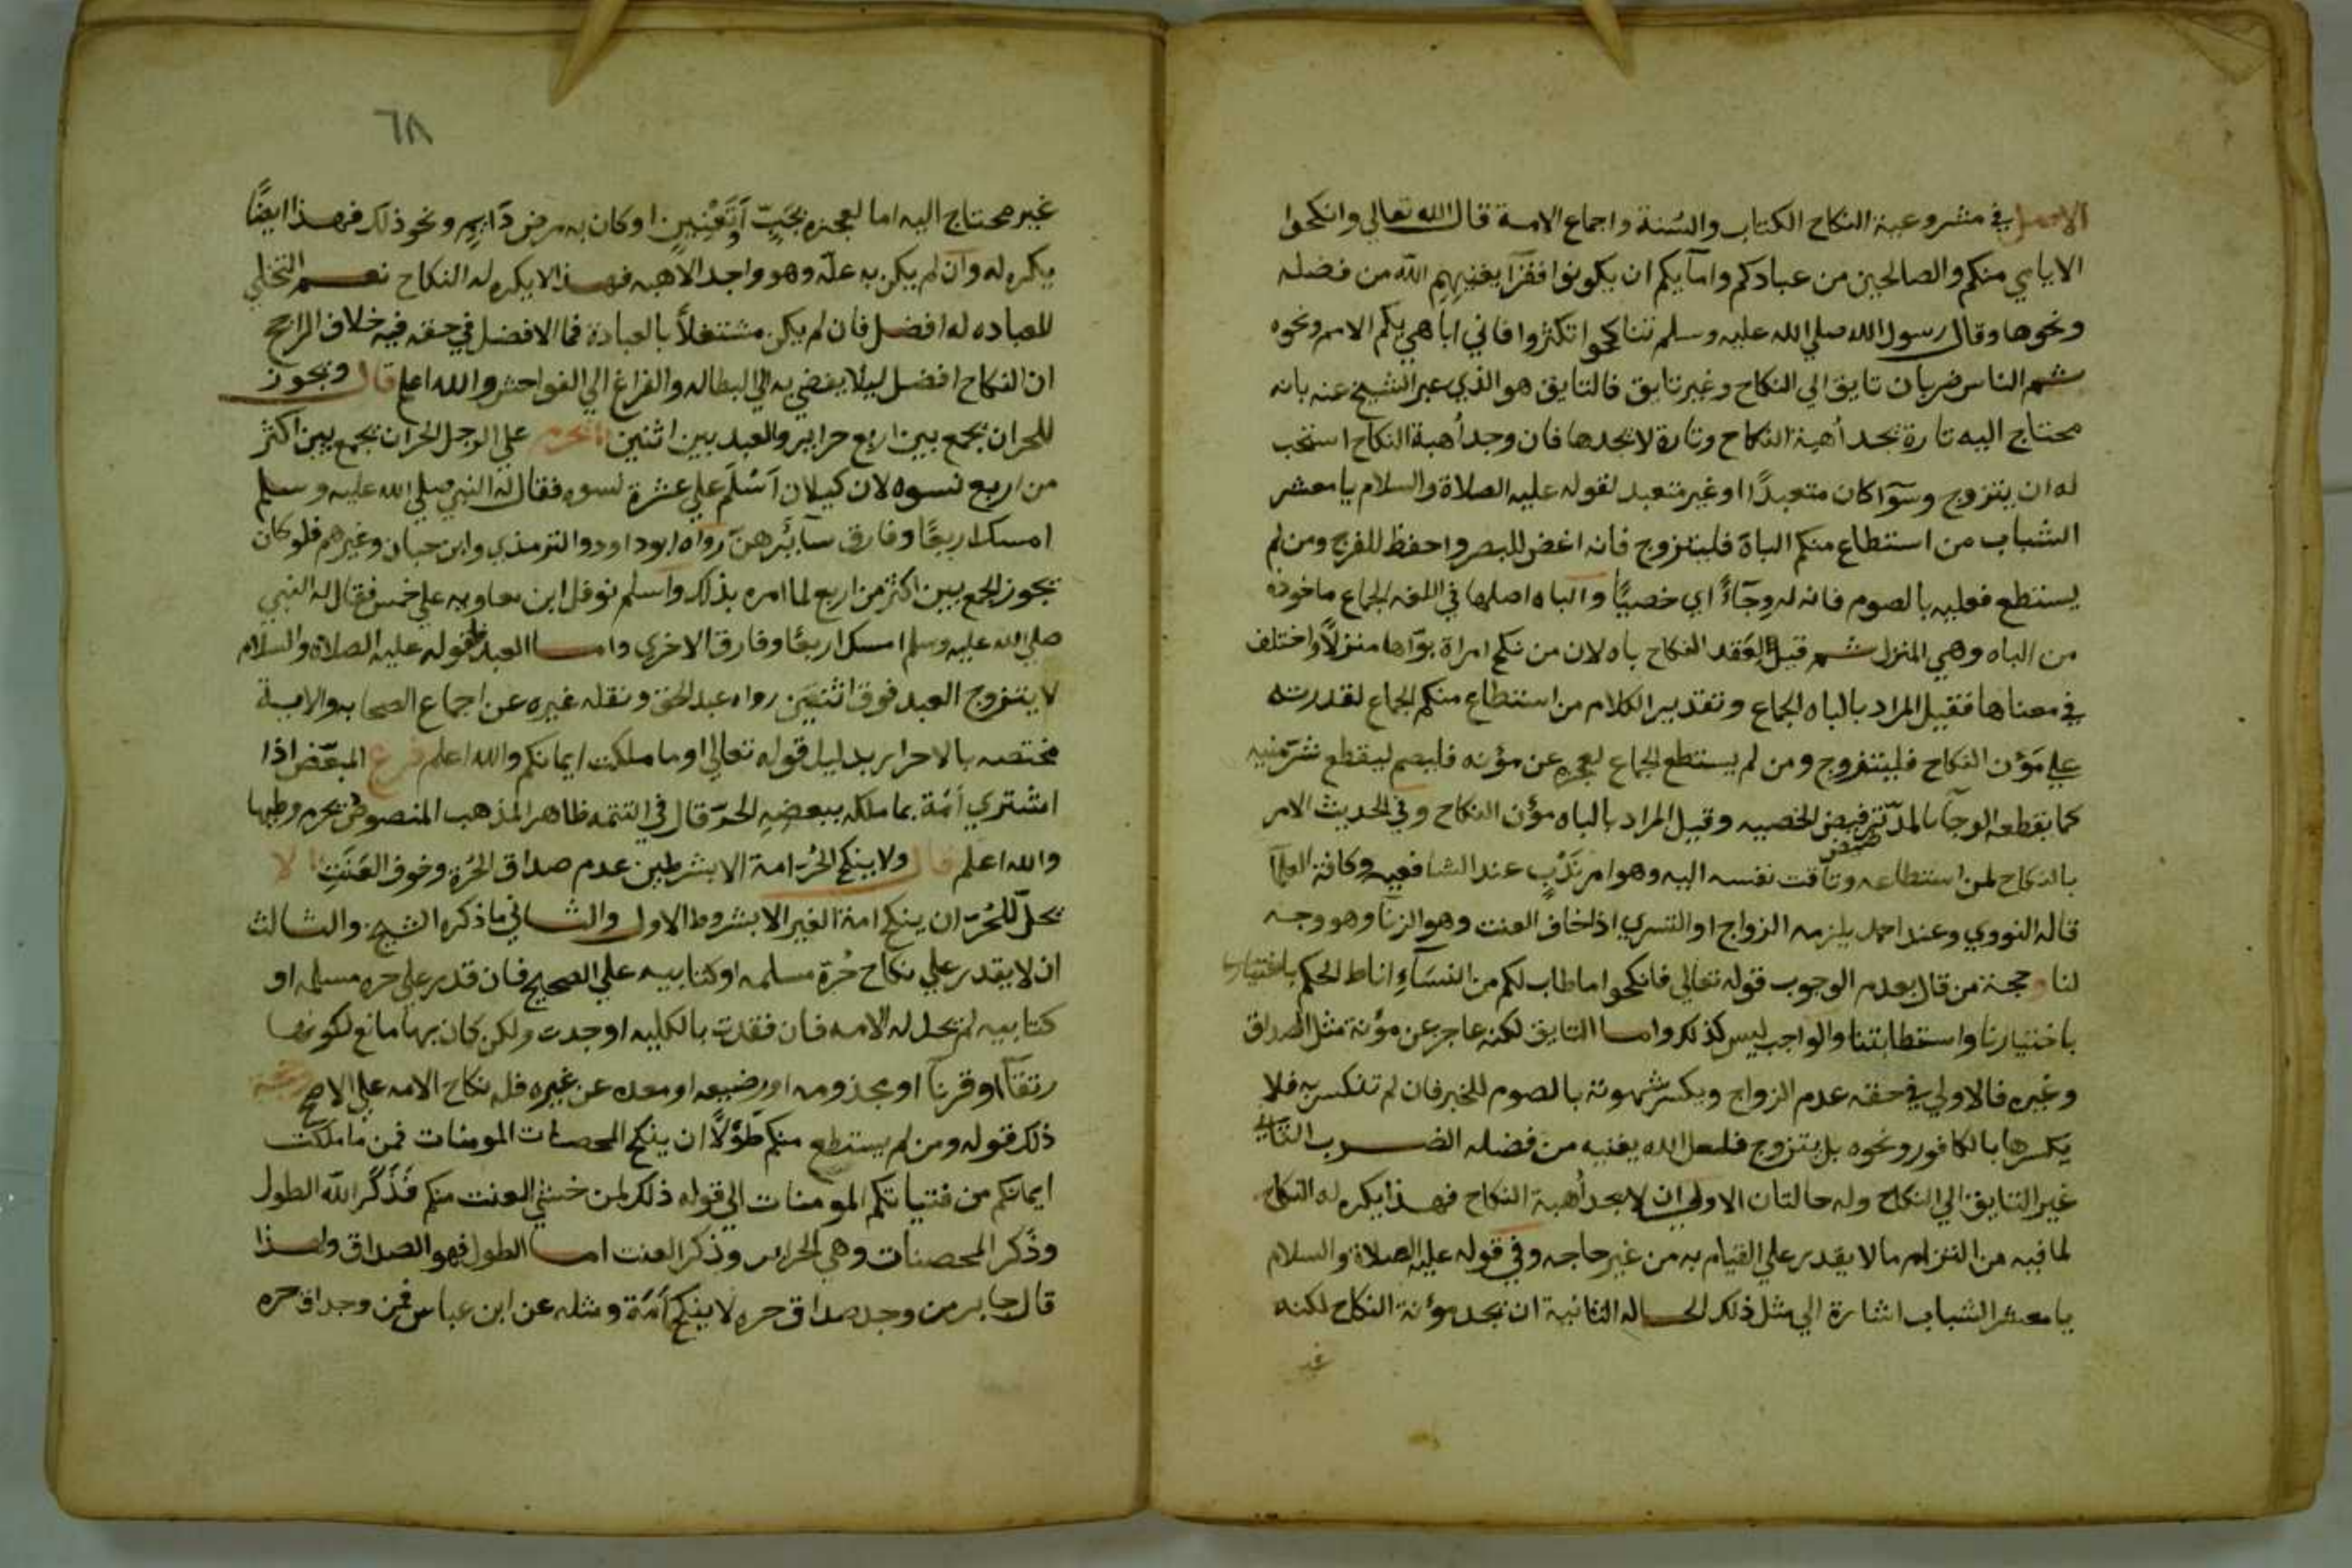 الاصل في مشروعية النكاح الكتاب والسُنة واجماع الامة قال الله تعالي وانكحوا
الايامي منكم والصالحين من عبادكم وامآيكم ان يكونوا فقرآ يغنيهم الله من فضله
ونحوها وقال رسول الله صلي الله عليه وسلم تناكحوا تكثروا فاني اباهي بكم الامم ونحوه
ثم الناس ضربان تايق الي النكاح وغير تايق فالتايق هو الذي عبر الشيخ عنه بانه
محتاج اليه تارة يجد أهبة النكاح وتارة لا يجدها فان وجد أهبة النكاح استحب
له ان يتزوج وسوآ كان متعبدًا او غير متعبد لقوله عليه الصلاة والسلام يا معشر
الشباب من استطاع منكم الباة فليتزوج فانه اغض للبصر واحفظ للفرج ومن لم
يستطع فعليه بالصوم فانه له وِجَآءٌ اي خصيًّا والباه اصلها في اللغه الجماع ماخوذه
من الباه وهي المنزل ثم قيل لعَقد النكاح باه لان من نكح امراة بوّاها منزلاً واختلف
في معناها فقيل المراد بالباه الجماع وتقدير الكلام من استطاع منكم الجماع لقدرته
علي مَؤن النكاح فليتزوج ومن لم يستطع الجماع لعجزه عن مؤنه فليصم ليقطع شرّ منيه
كما يقطعه الوجآ بالمد رض الخصيه وقيل المراد بالباه مؤن النكاح وفي الحديث الامر
بالنكاح لمن استطاعه وتآقت نفسه اليه وهو امر نَدْبٍ عند الشافعيه وكافة العلمآ
قاله النووي وعند احمد يلزمه الزواج او التسري اذا خاف العنت وهو الزنا وهو وجه
لنا وحجة من قال بعدم الوجوب قوله تعالي فانكحوا ما طاب لكم من النسَآءِ اناط الحكم باختيارنا
باختيارنا واستطابتنا والواجب ليس كذلك واما التايق لكنه عاجز عن مؤنة مثل الصداق
وغيره فالاولي في حقه عدم الزواج ويكسر شهوته بالصوم للخبر فان لم تنكسر به فلا
يكسرها بالكافور ونحوه بل يتزوج فلعل الله يغنيه من فضله الضرب الثاني
غير التايق الي النكاح وله حالتان الاولي ان لا يجد أهبة النكاح فهذا يكره له النكاح
لما فيه من التزام ما لا يقدر علي القيام به من غير حاجه وفي قوله عليه الصلاة والسلام
يا معشر الشباب اشارة الي مثل ذلك الحاله الثانية ان يجد مؤنة النكاح لكنه
غير
٦٨
غير محتاج اليه اما لعجزه بجَبّ اَو تَعْنِينٍ او كان به مرض دَايم ونحو ذلك فهذا ايضًا
يكره له وان لم يكن به علّه وهو واجد الاهبه فهذا لا يكره له النكاح نعم التخلي
للعباده له افضل فان لم يكن مشتغلاً بالعبادة فما الافضل في حقه فيه خلاف الراجح
ان النكاح افضل ليلا يفضي به الي البطاله والفراغ الي الفواحش والله اعلم قال ويجوز
للحر ان يجمع بين اربع حراير والعبد بين اثنين يحرم علي الرجل الحر ان يجمع بين اكثر
من اربع نسوه لان غيلان اَسْلَم علي عشرة نسوه فقال له النبي صلي الله عليه وسلم
امسك اربعًا وفارق سآئرهن رواه ابو داود والترمذي وابن حبان وغيرهم فلو كان
يجوز الجمع بين اكثر من اربع لما امره بذلك واسلم نوفل ابن معاويه علي خمس فقال له النبي
صلي الله عليه وسلم امسك اربعًا وفارق الاخري واما العبد فلقوله عليه الصلاة والسلام
لا يتزوج العبد فوق اثنتين رواه عبد الحق ونقله غيره عن اجماع الصحابه والاية
مختصه بالاحرار بدليل قوله تعالي او ما ملكت ايمانكم والله اعلم فرع المبعّض اذا
اشتري أمَة بما ملكه ببعضه الحرّ قال في التتمه ظاهر المذهب المنصوص يحرم وطيها
والله اعلم قال ولا ينكح الحُرّ امة الا بشرطين عدم صداق الحُرة وخوف العَنَتِ لا
يحلّ للحُرّ ان ينكح امة الغير الا بشروط الاول والثاني ما ذكره الشيخ والثالث
ان لا يقدر علي نكاح حُرة مسلمه او كتابيه علي الصحيح فان قدر علي حره مسلمه او
كتابيه لم يحل له الامه فان فقدت بالكليه او وجدت ولكن كان بها مانع لكونها
رتقآ او قرنآ او مجذومه او رضيعه او معتده عن غيره فله نكاح الامه علي الاصح
ذلك قوله ومن لم يستطع منكم طَوْلاً ان ينكح المحصنات المومنات فمن ما ملكت
ايمانكم من فتياتكم المومنات الي قوله ذلك لمن خشي العنت منكم فَذَكَر الله الطول
وذَكر المحصنات وهي الحراير وذكر العنت اما الطول فهو الصداق ولهذا
قال جابر من وجد صداق حره لا ينكح أمَة ومثله عن ابن عباس فمن وجد اق حره